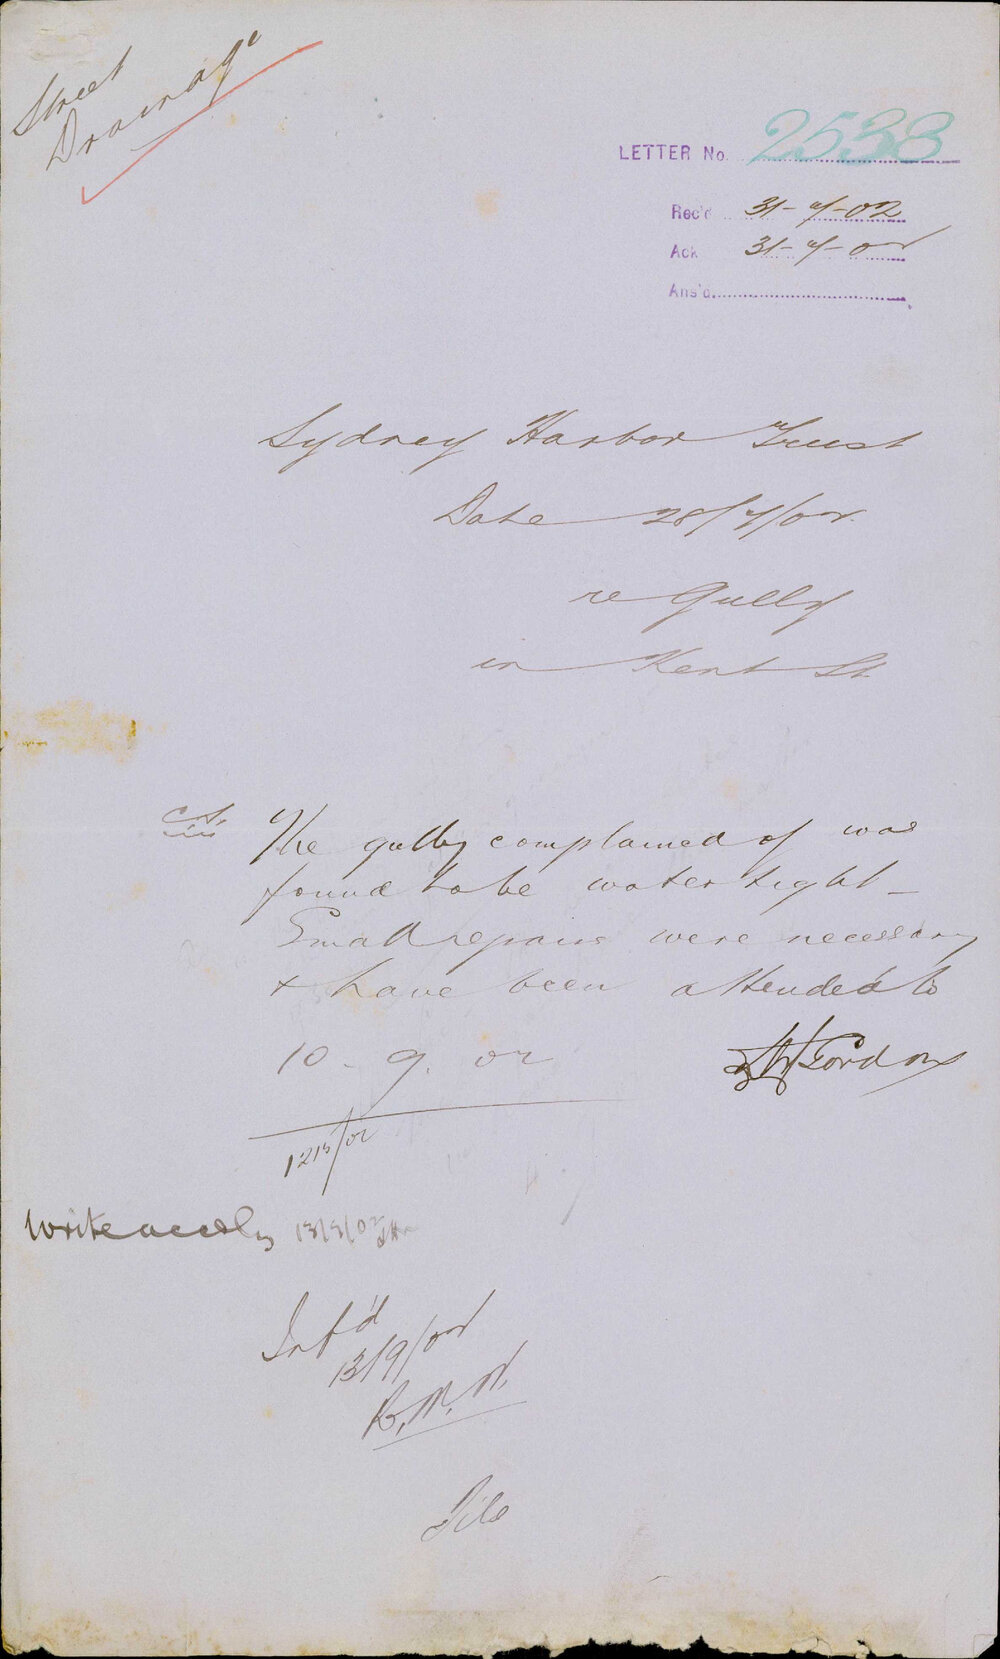 Street
Drainage
LETTER No. 2533
Rec'd 31-7-02
Ack 31-7-02
Ans'd
Sydney Harbor Trust
Date 28/7/02
re Gully
in Kent St
The gully complained of was
found to be water tight -
Small repairs were necessary
& have been attended to
10. 9. 02
Gordon
Write accdly
Inf'd
13/9/02
File